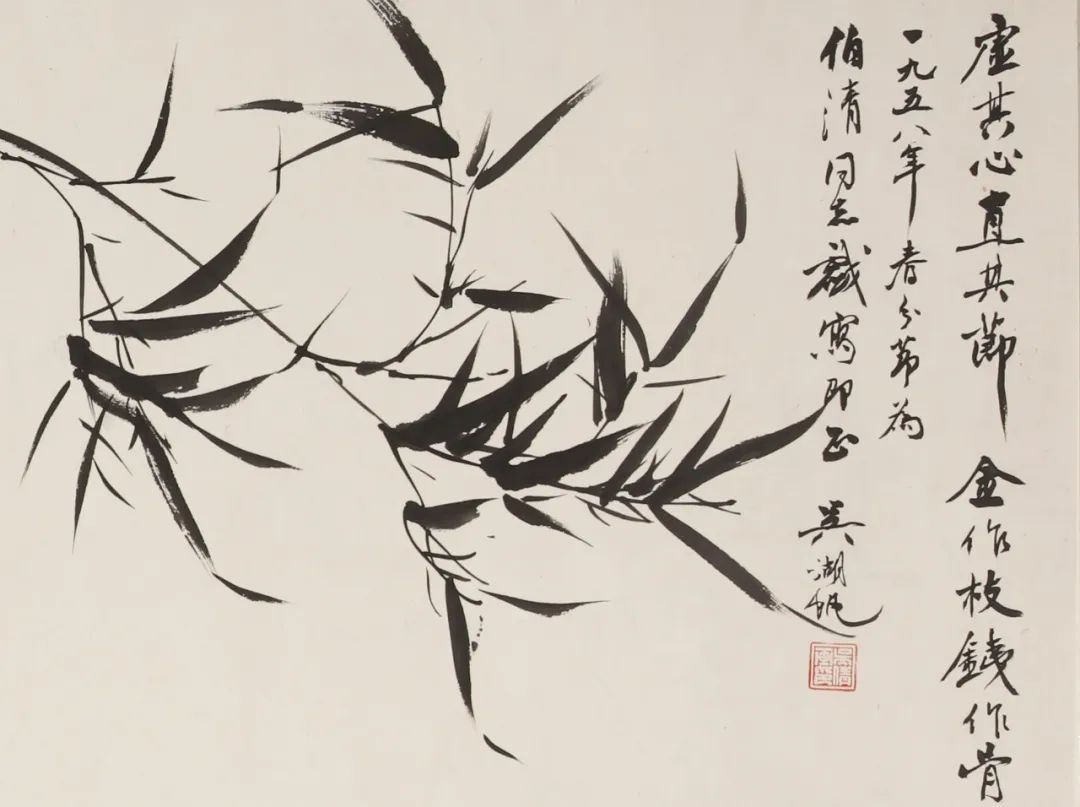 虛其心直其節 金作枝銕作骨
一九五八年春分節為
伯清同志戲寫即正 吳湖帆